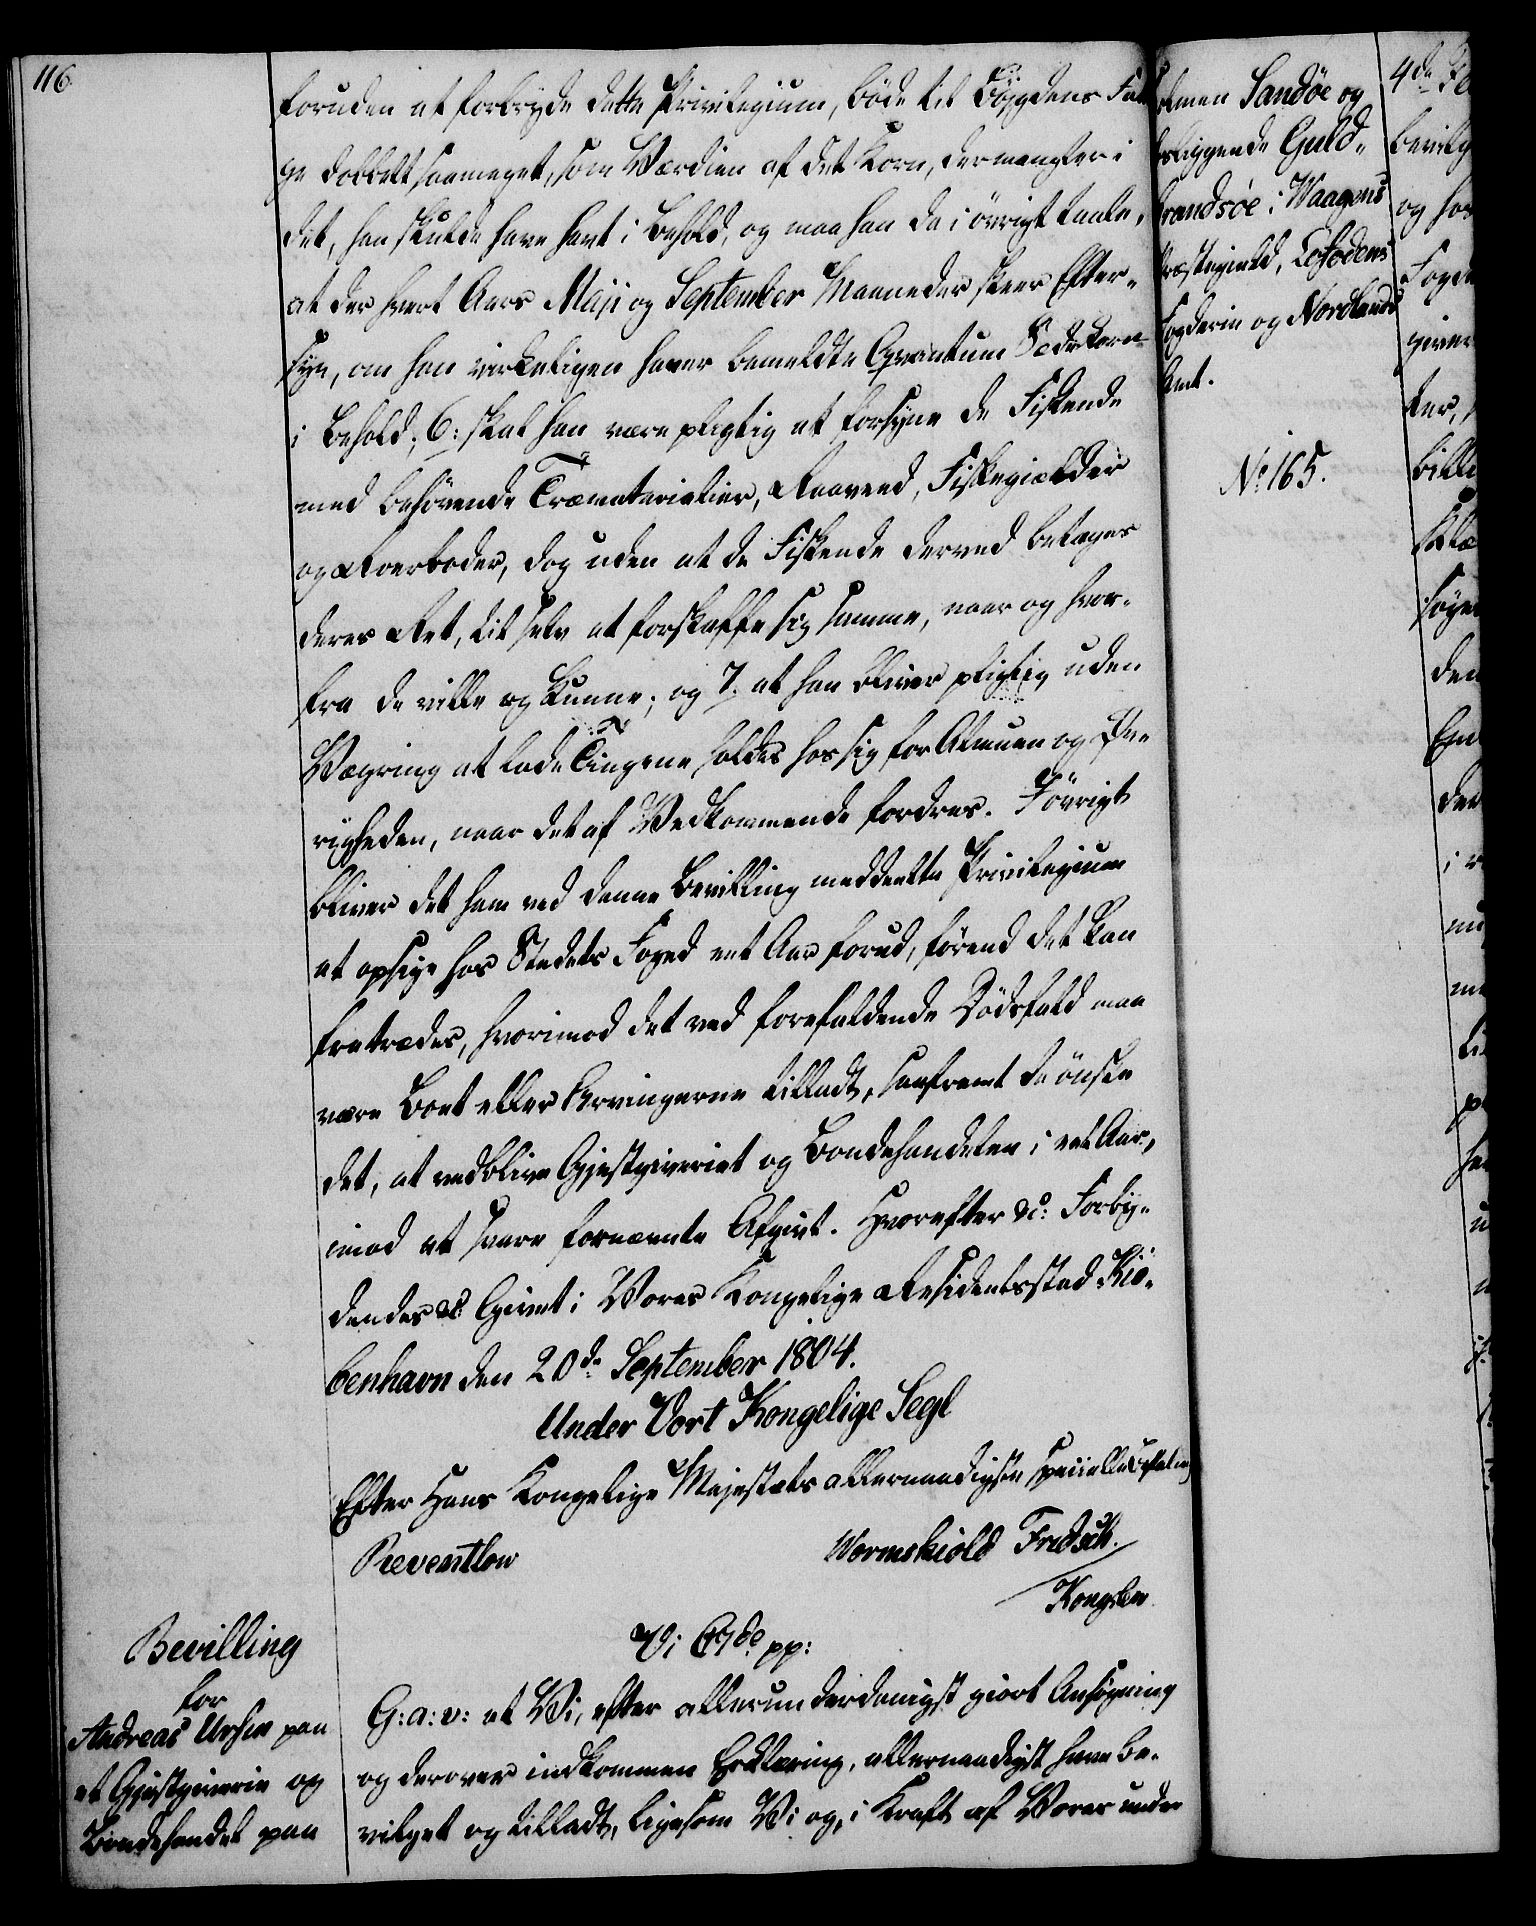 116
foruden at forbryde dette Privilegium, bøde til Bøjgdens
ge dobbelt saameget, som Værdien af det Korn, der mangler i
det, han skulde have havt i Behold, og maa han da i øvrigt taale,
at der hvert Aars Maji og September Maaneder skeer Efter-
syn, om han virkeligen haver bemeldte Qvantum Sædekorn
i Behold; 6: skal han være pligtig at forsyne de Fiskende
med behøvende Træmaterialier, Raaved, Fiskegiælder
og Roerboder, dog uden at de Fiskende derved betages
deres Ret, til selv at forskaffe sig samme, naar og hvor-
fra de ville og kunne; og 7. at han bliver pligtig uden
Vægring at lade Tingene holdes hos sig for Almuen og Øv-
righeden, naar det af Vedkommende fordres. Iøvrigt
bliver det ham ved denne Bevilling meddeelte Privilegium
at opsige hos Stedets Foged eet Aar forud, førend det kan
fratrædes, hvorimod det ved forefaldende Dødsfald maa
være Boet eller Arvingerne tilladt, saafremt de ønske
det, at vedblive Gjestgiveriet og Bondehandelen i eet Aar,
imod at svare fornævnte Afgivt. Hvorefter &c: Forby-
dendes &c: Givet i Vores Kongelige Residentsstad Kiø-
benhavn den 20de September 1804.
Under Vort Kongelige Segl
Efter Hans Kongelige Majestæts allernaadigste specielle Befaling
Reventlow
Wormskiold Fridsch.
Kongslew
Bevilling
for
Andreas Urhsin paa
et Gjestgiverie og
Bondehandel paa
Vi C7de pp:
G: a: v: at Vi, efter allerunderdanigst giort Ansøgning
og derover indkommen Erklæring, allernaadigst have be-
vilget og tilladt, ligesom Vi og, i Kraft af Vores under
Sandøe og
Guld-
brandsøe i Waagens
Præstegield, Lofodens
Fogderie og Nordlands
Amt.
No 165.
4de